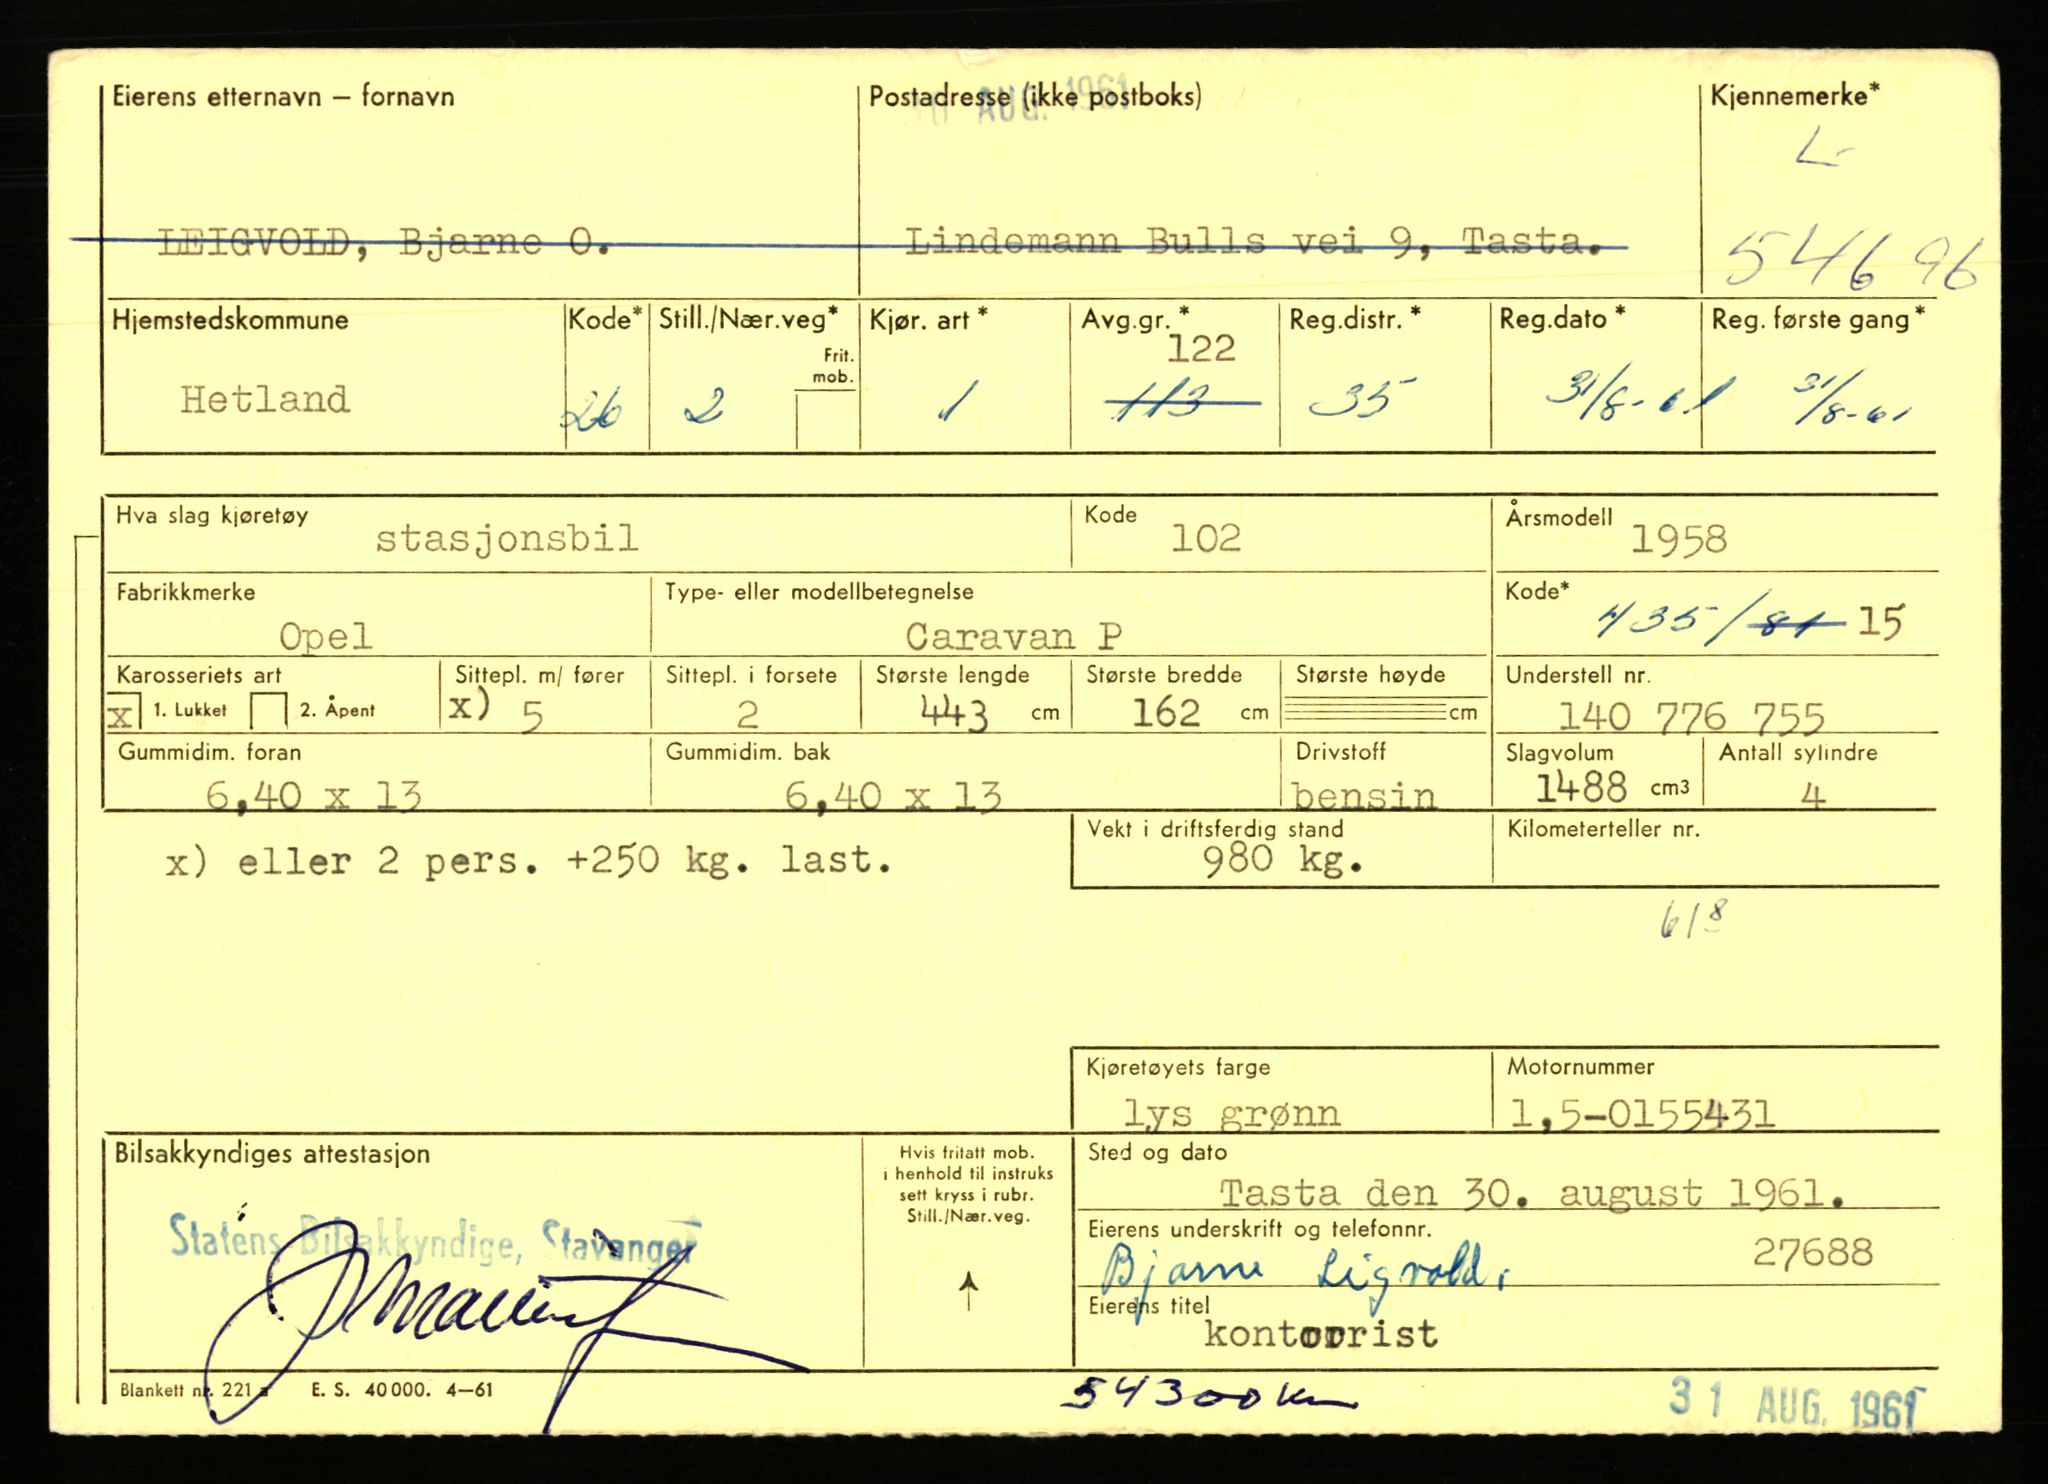 Eierens etternavn – fornavn Postadresse (ikke postboks) Kjennemerke*
AUG. 1961
L-
LEIGVOLD, Bjarne O. Lindemann Bulls vei 9, Tasta. 54696
Hjemstedskommune Kode* Still./Nær.veg* Kjør. art * Avg.gr. * Reg.distr. * Reg.dato * Reg. første gang*
Frit. mob. 122
Hetland 26 2 1 113 35 31/8-61 31/8-61
Hva slag kjøretøy Kode Årsmodell
stasjonsbil 102 1958
Fabrikkmerke Type- eller modellbetegnelse Kode*
Opel Caravan P 435/81 15
Karosseriets art Sittepl. m/ fører Sittepl. i forsete Største lengde Største bredde Største høyde Understell nr.
x 1. Lukket 2. Åpent x) 5 2 443 cm 162 cm cm 140 776 755
Gummidim. foran Gummidim. bak Drivstoff Slagvolum Antall sylindre
6,40 x 13 6,40 x 13 bensin 1488 cm3 4
Vekt i driftsferdig stand Kilometerteller nr.
x) eller 2 pers. +250 kg. last. 980 kg.
61 8
Kjøretøyets farge Motornummer
lys grønn 1,5-0155431
Bilsakkyndiges attestasjon Hvis fritatt mob. i henhold til instruks sett kryss i rubr. Still./Nær.veg. Sted og dato
Tasta den 30. august 1961.
Statens Bilsakkyndige, Stavanger
Eierens underskrift og telefonnr.
Bjarne Leigvold. 27688
Eierens titel
kontorrist
Blankett nr. 221 a E. S. 40000. 4–61 54300 km 31 AUG. 1961